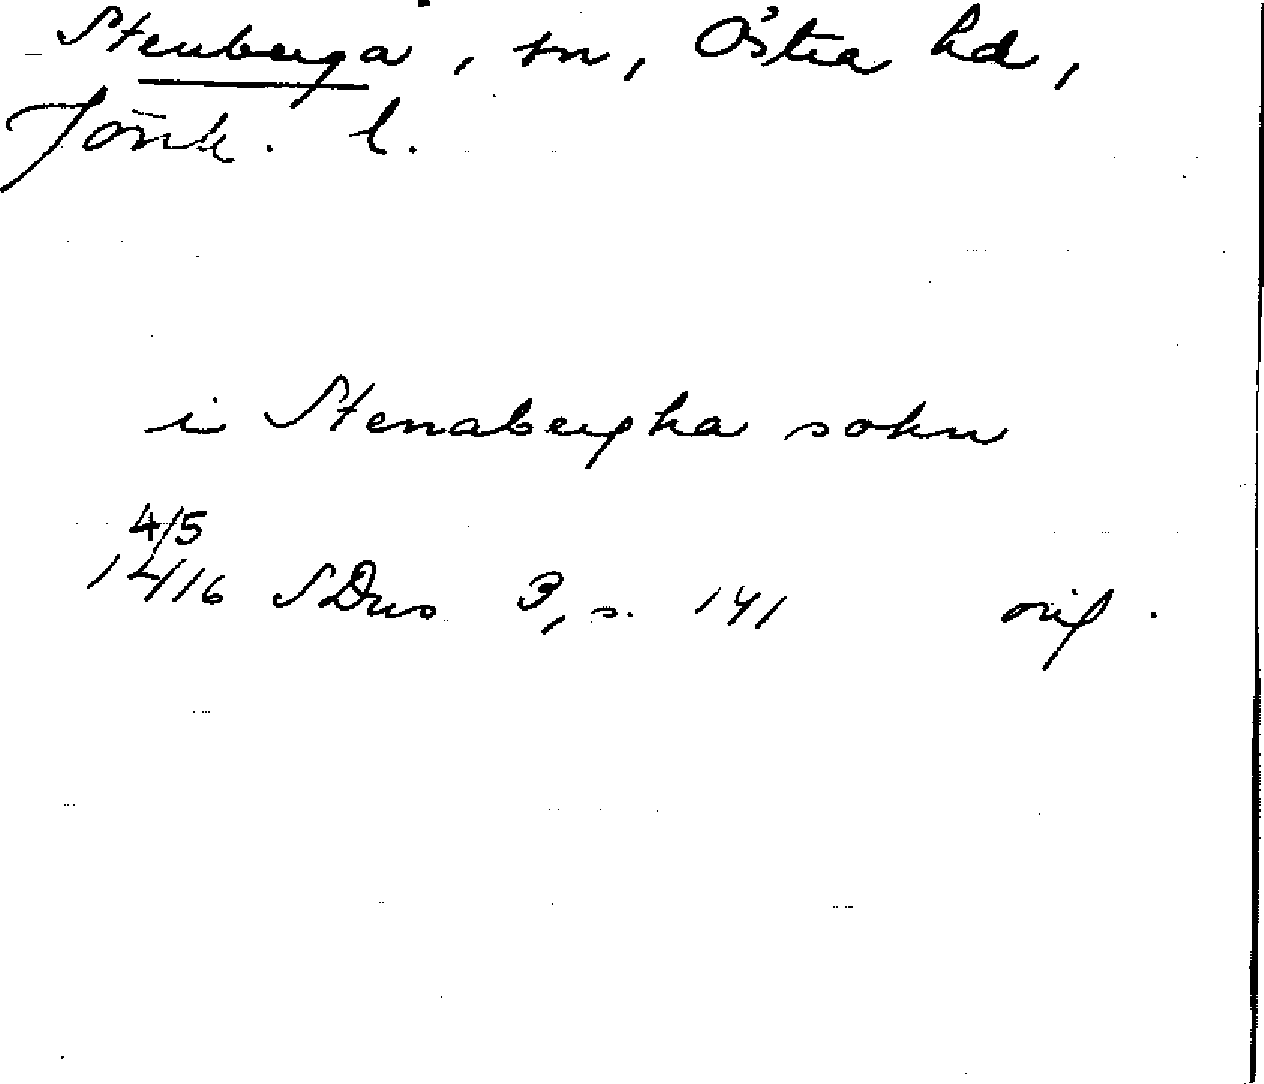 Stenberga, sn, Östra hd,
Jönk. l.
i Stenabergha sokn
4/5
1416 SDns 3, s. 141 orig.